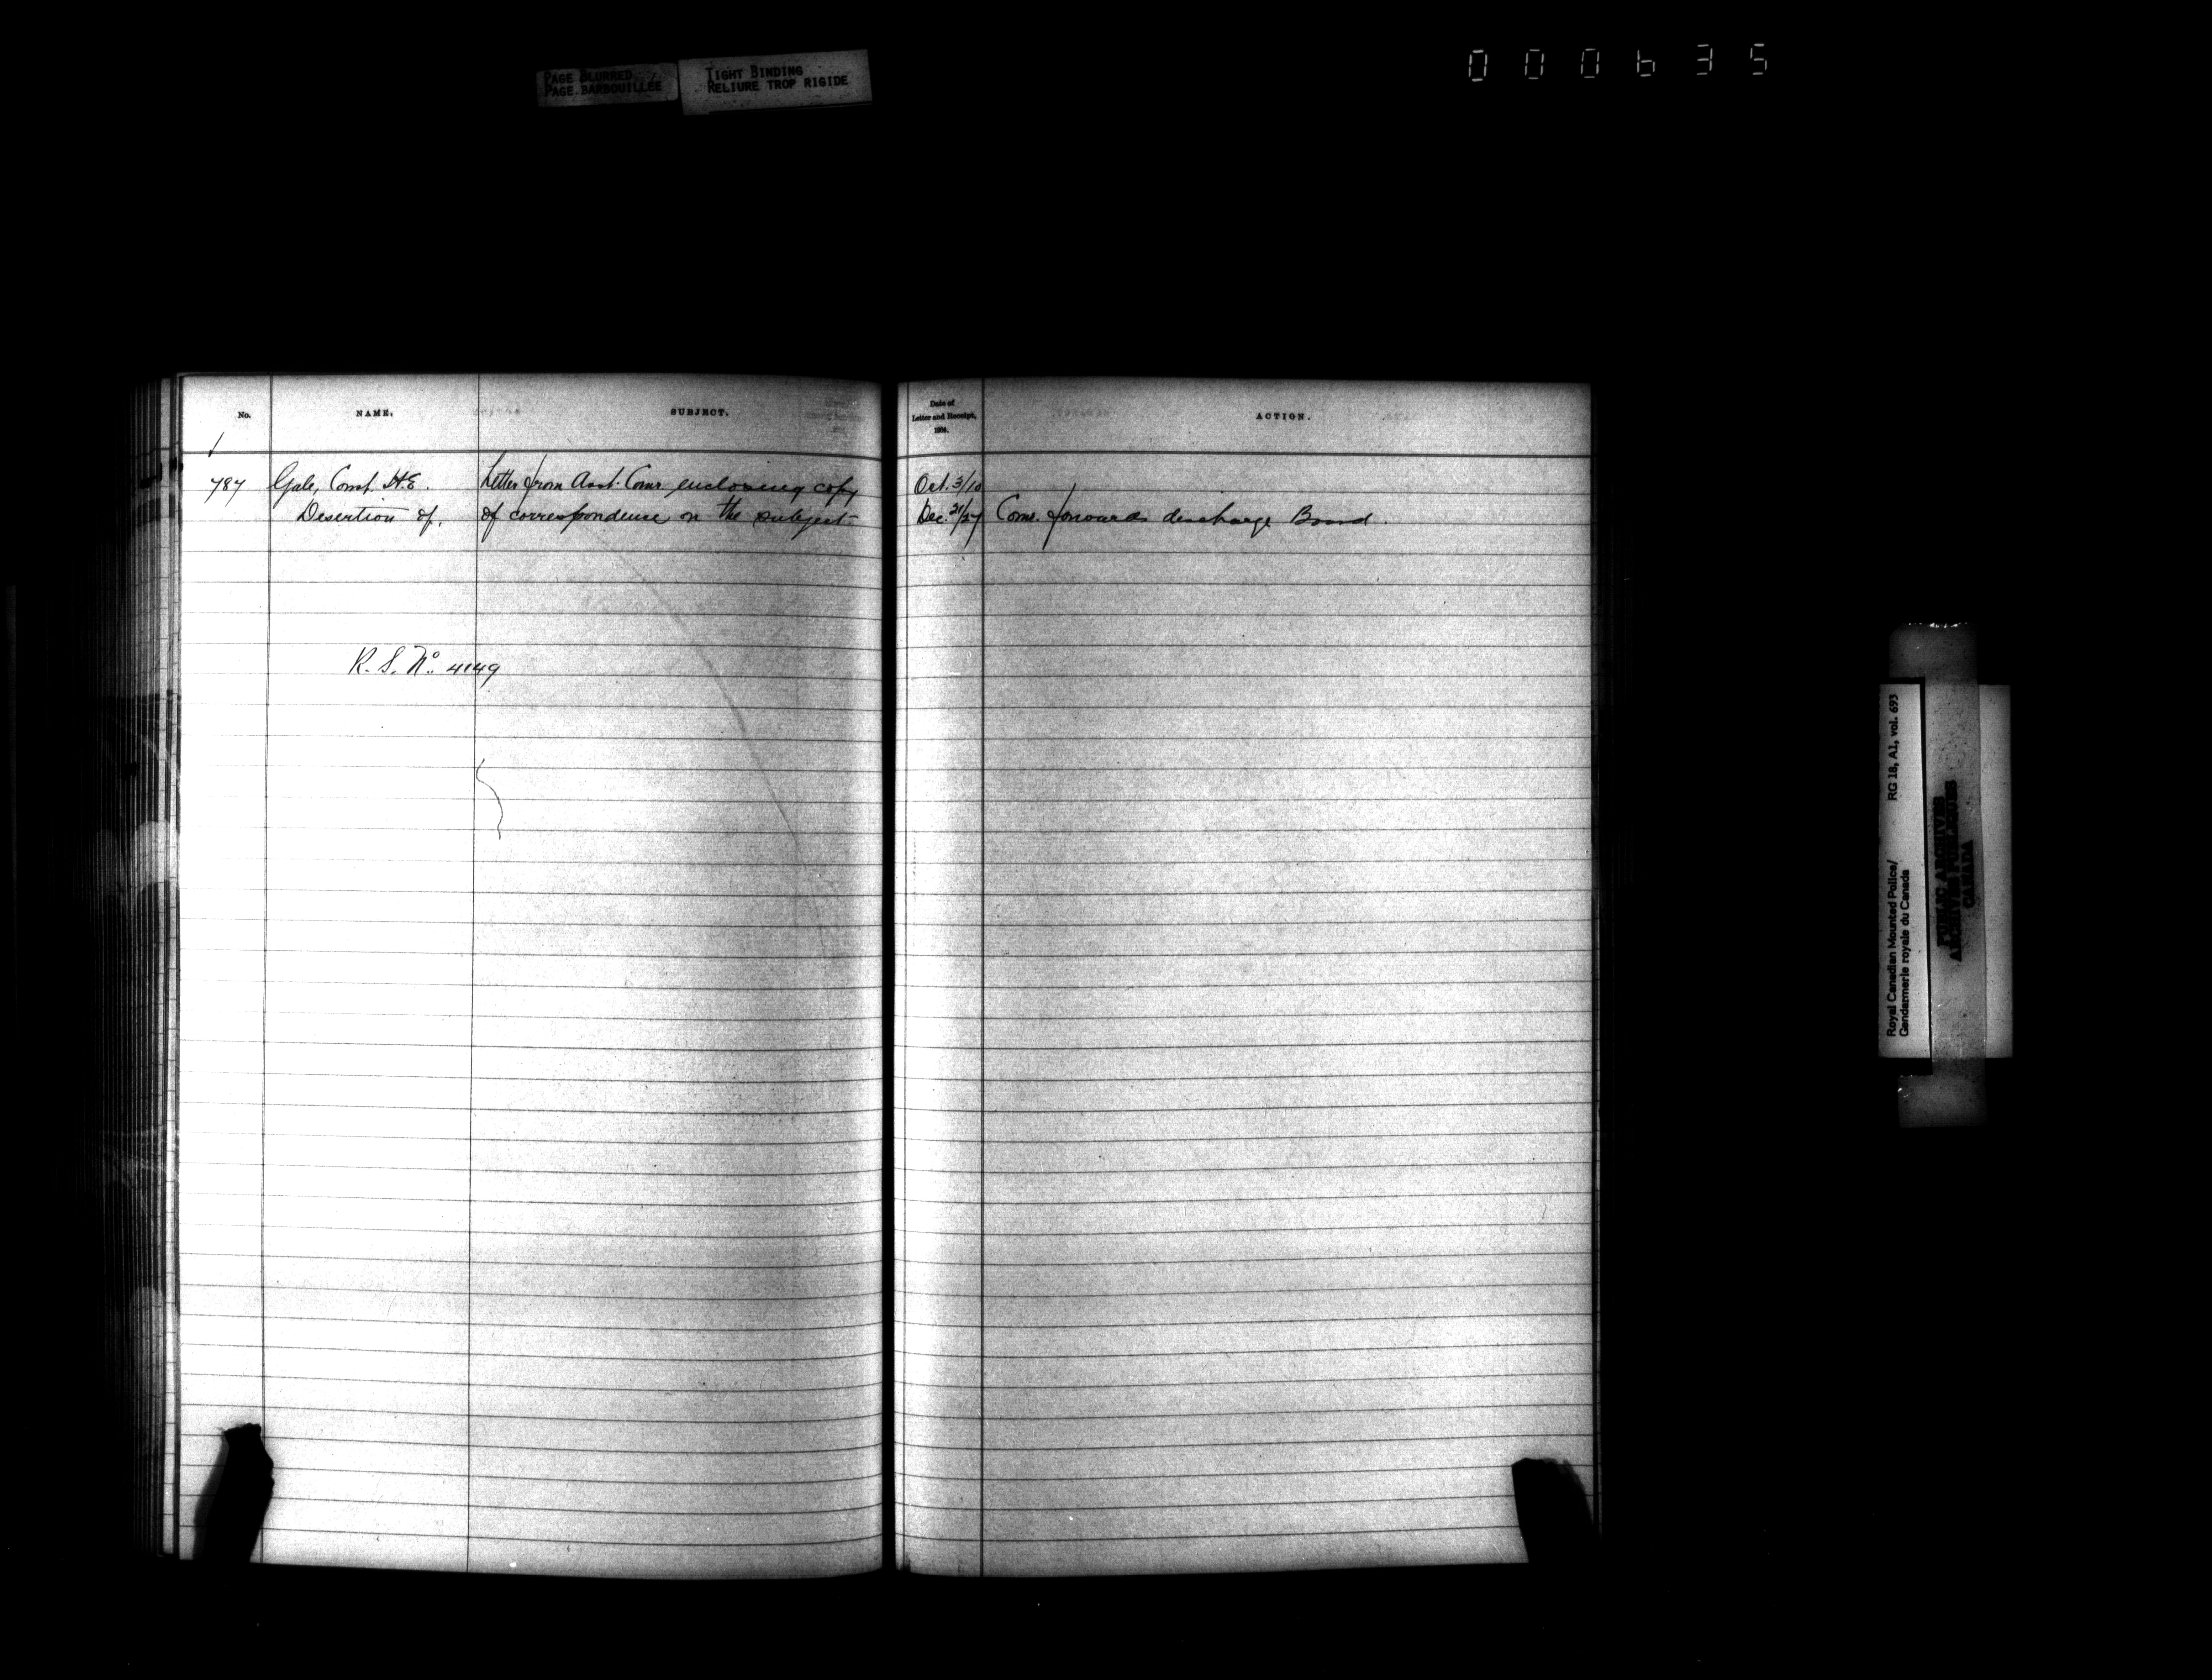 PAGE BLURRED
PAGE BARBOUILLÉE
TIGHT BINDING
RELIURE TROP RIGIDE
000635
No. NAME. SUBJECT. Date of Letter and Receipt, ACTION.
787 Gale, Const. H.E. Letter from Asst. Comr. enclosing copy Oct. 3/10
Desertion of. of correspondence on the subject Dec. 21/27 Comr. forwards discharge Board.
R.S. No. 4149
Royal Canadian Mounted Police/ RG 18, A1, vol. 693
Gendarmerie royale du Canada
PUBLIC ARCHIVES
ARCHIVES PUBLIQUES
CANADA